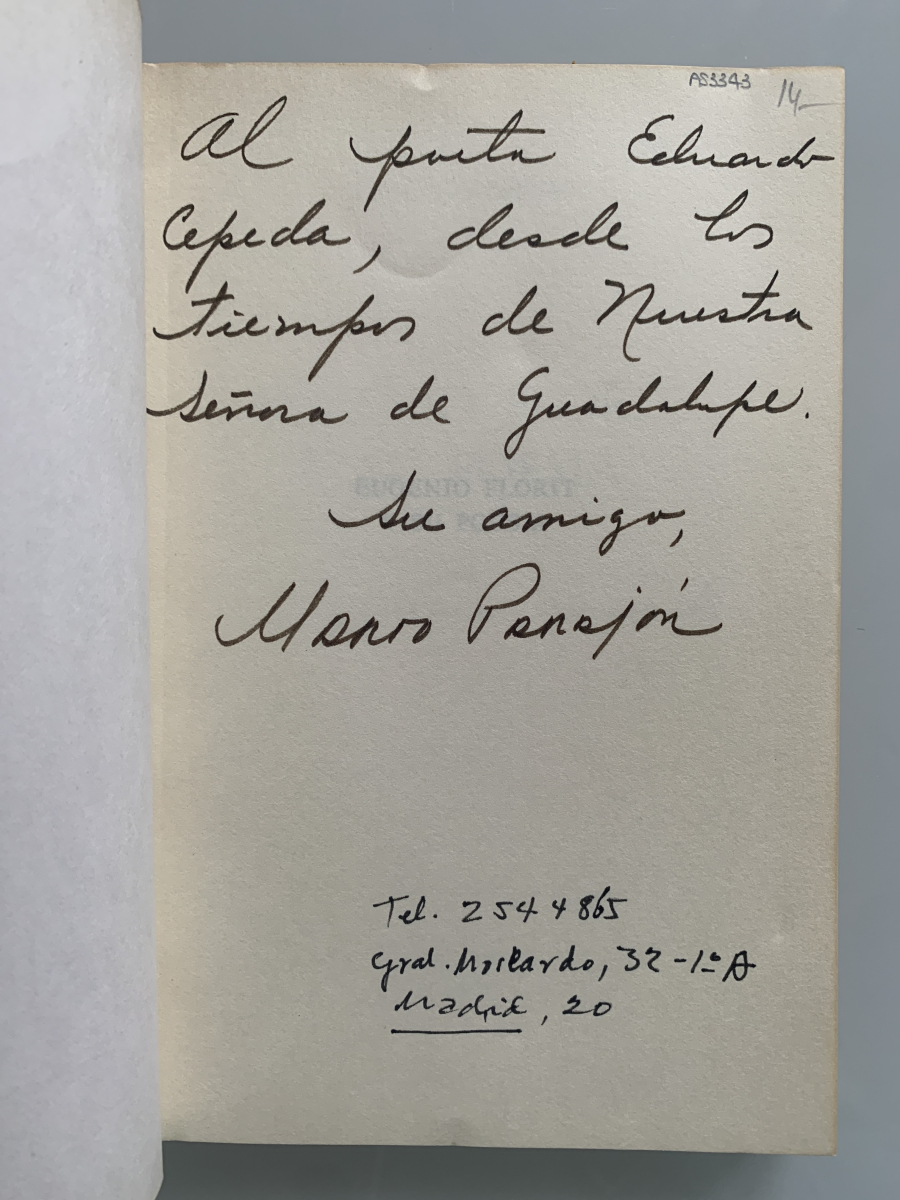 AS3343 14-
Al poeta Eduardo
Cepeda, desde los
tiempos de Nuestra
Señora de Guadalupe.
EUGENIO FLORIT
Su amigo,
Mario Parajón
Tel. 2544865
Gral. Moscardo, 32-1º A
Madrid, 20